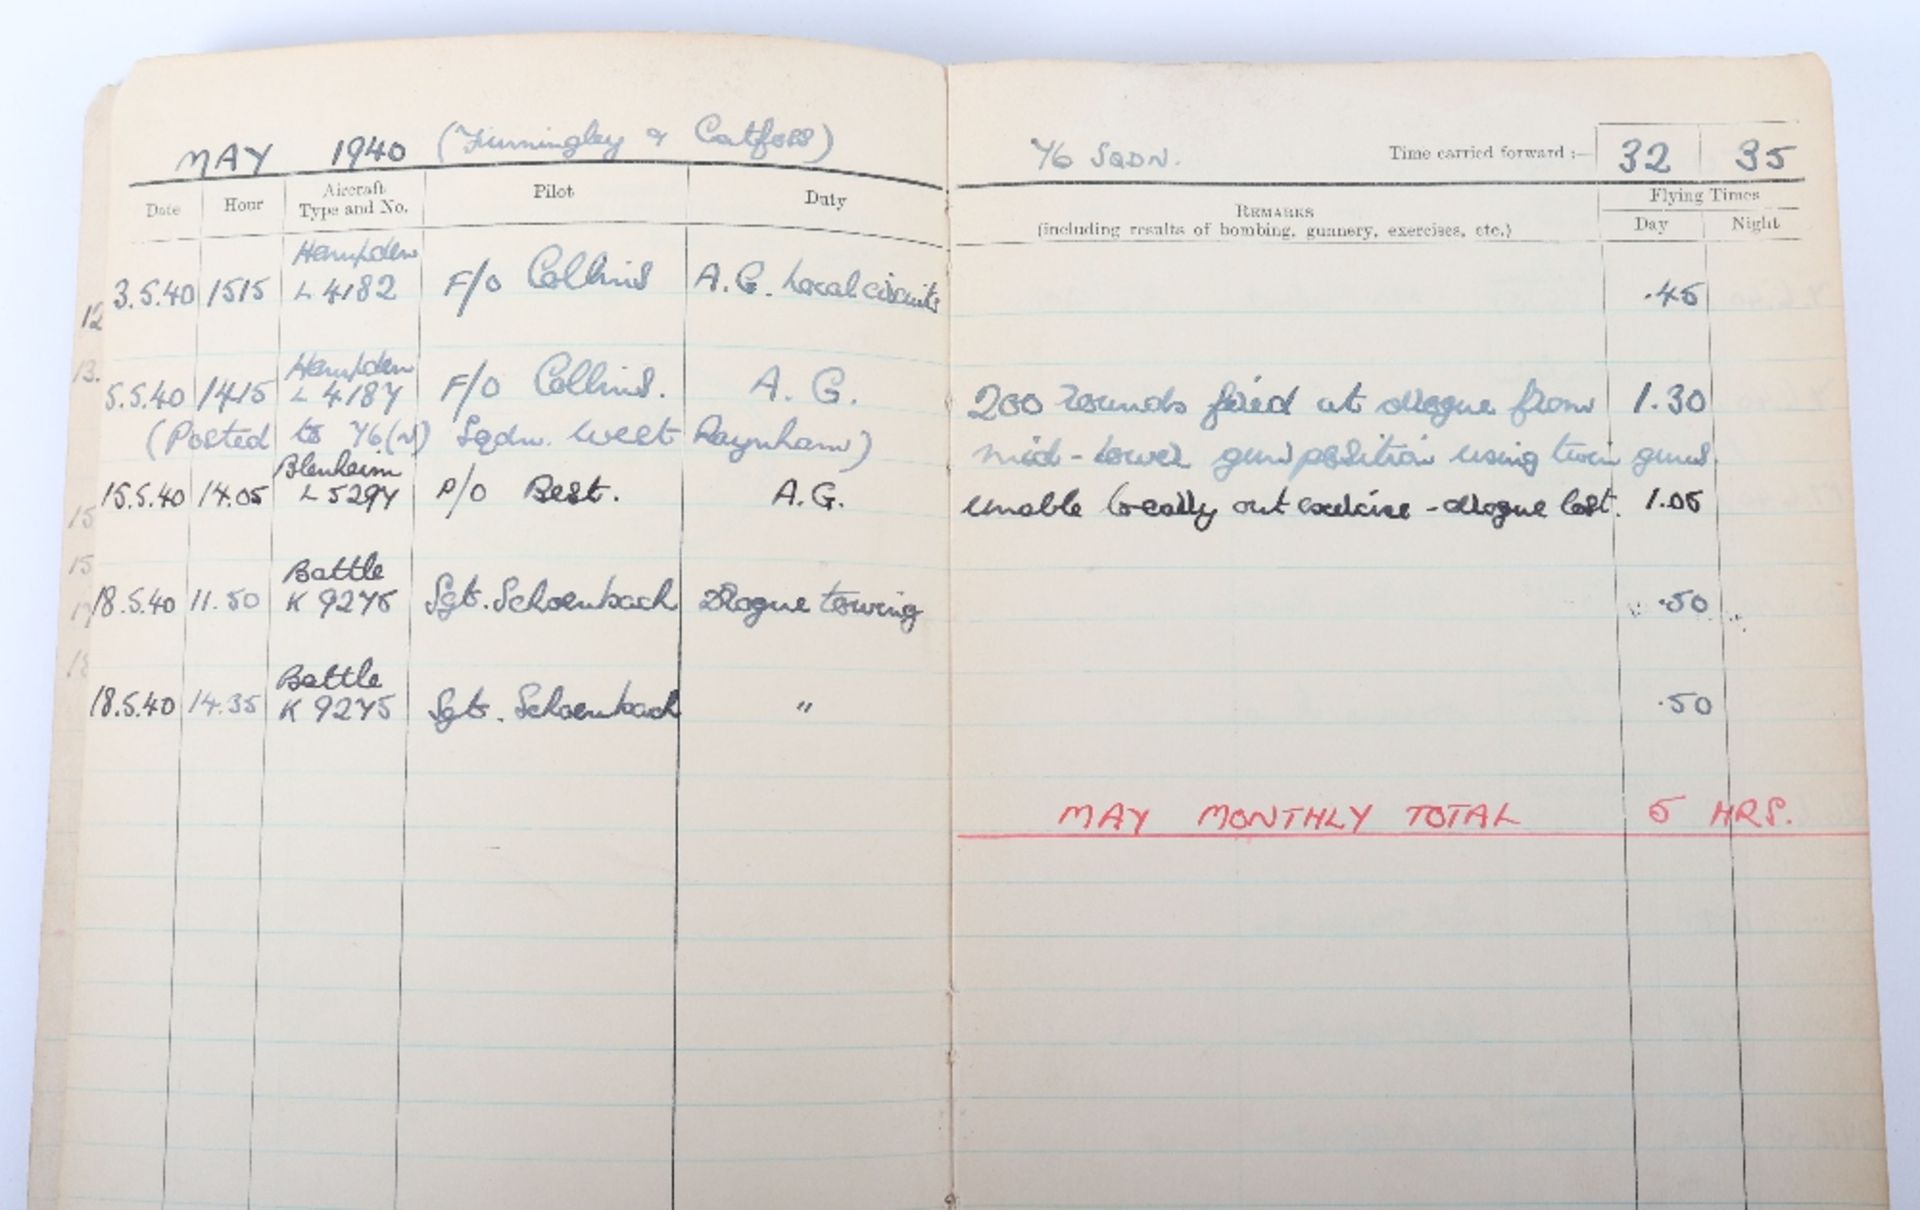 MAY 1940 (Finningley & Catfoss)
Date Hour Aircraft Type and No. Pilot Duty
Hampden
3.5.40 1515 L 4182 F/O Collins A.G. Local circuits
Hampden
5.5.40 1415 L 4187 F/O Collins. A.G.
(Posted to 76(N) Sqdn. West Raynham)
Blenheim
15.5.40 14.05 L 5297 P/O Best. A.G.
Battle
18.5.40 11.50 K 9275 Sgt. Schoenbach Drogue towing
Battle
18.5.40 14.35 K 9275 Sgt. Schoenbach "
12
13.
15
15
17
18
76 SQDN. Time carried forward :— 32 35
REMARKS
(including results of bombing, gunnery, exercises, etc.)
Flying Times
Day Night
.45
200 rounds fired at drogue from 1.30
mid-lower gun position using twin guns.
Unable to carry out exercise - drogue lost. 1.05
.50
.50
MAY MONTHLY TOTAL 5 HRS.